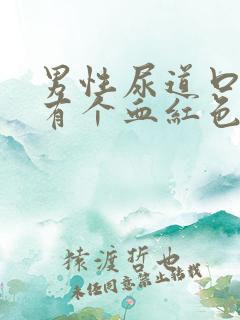 男性尿道口
有个血红色
猿渡哲也
未经同意禁止转载